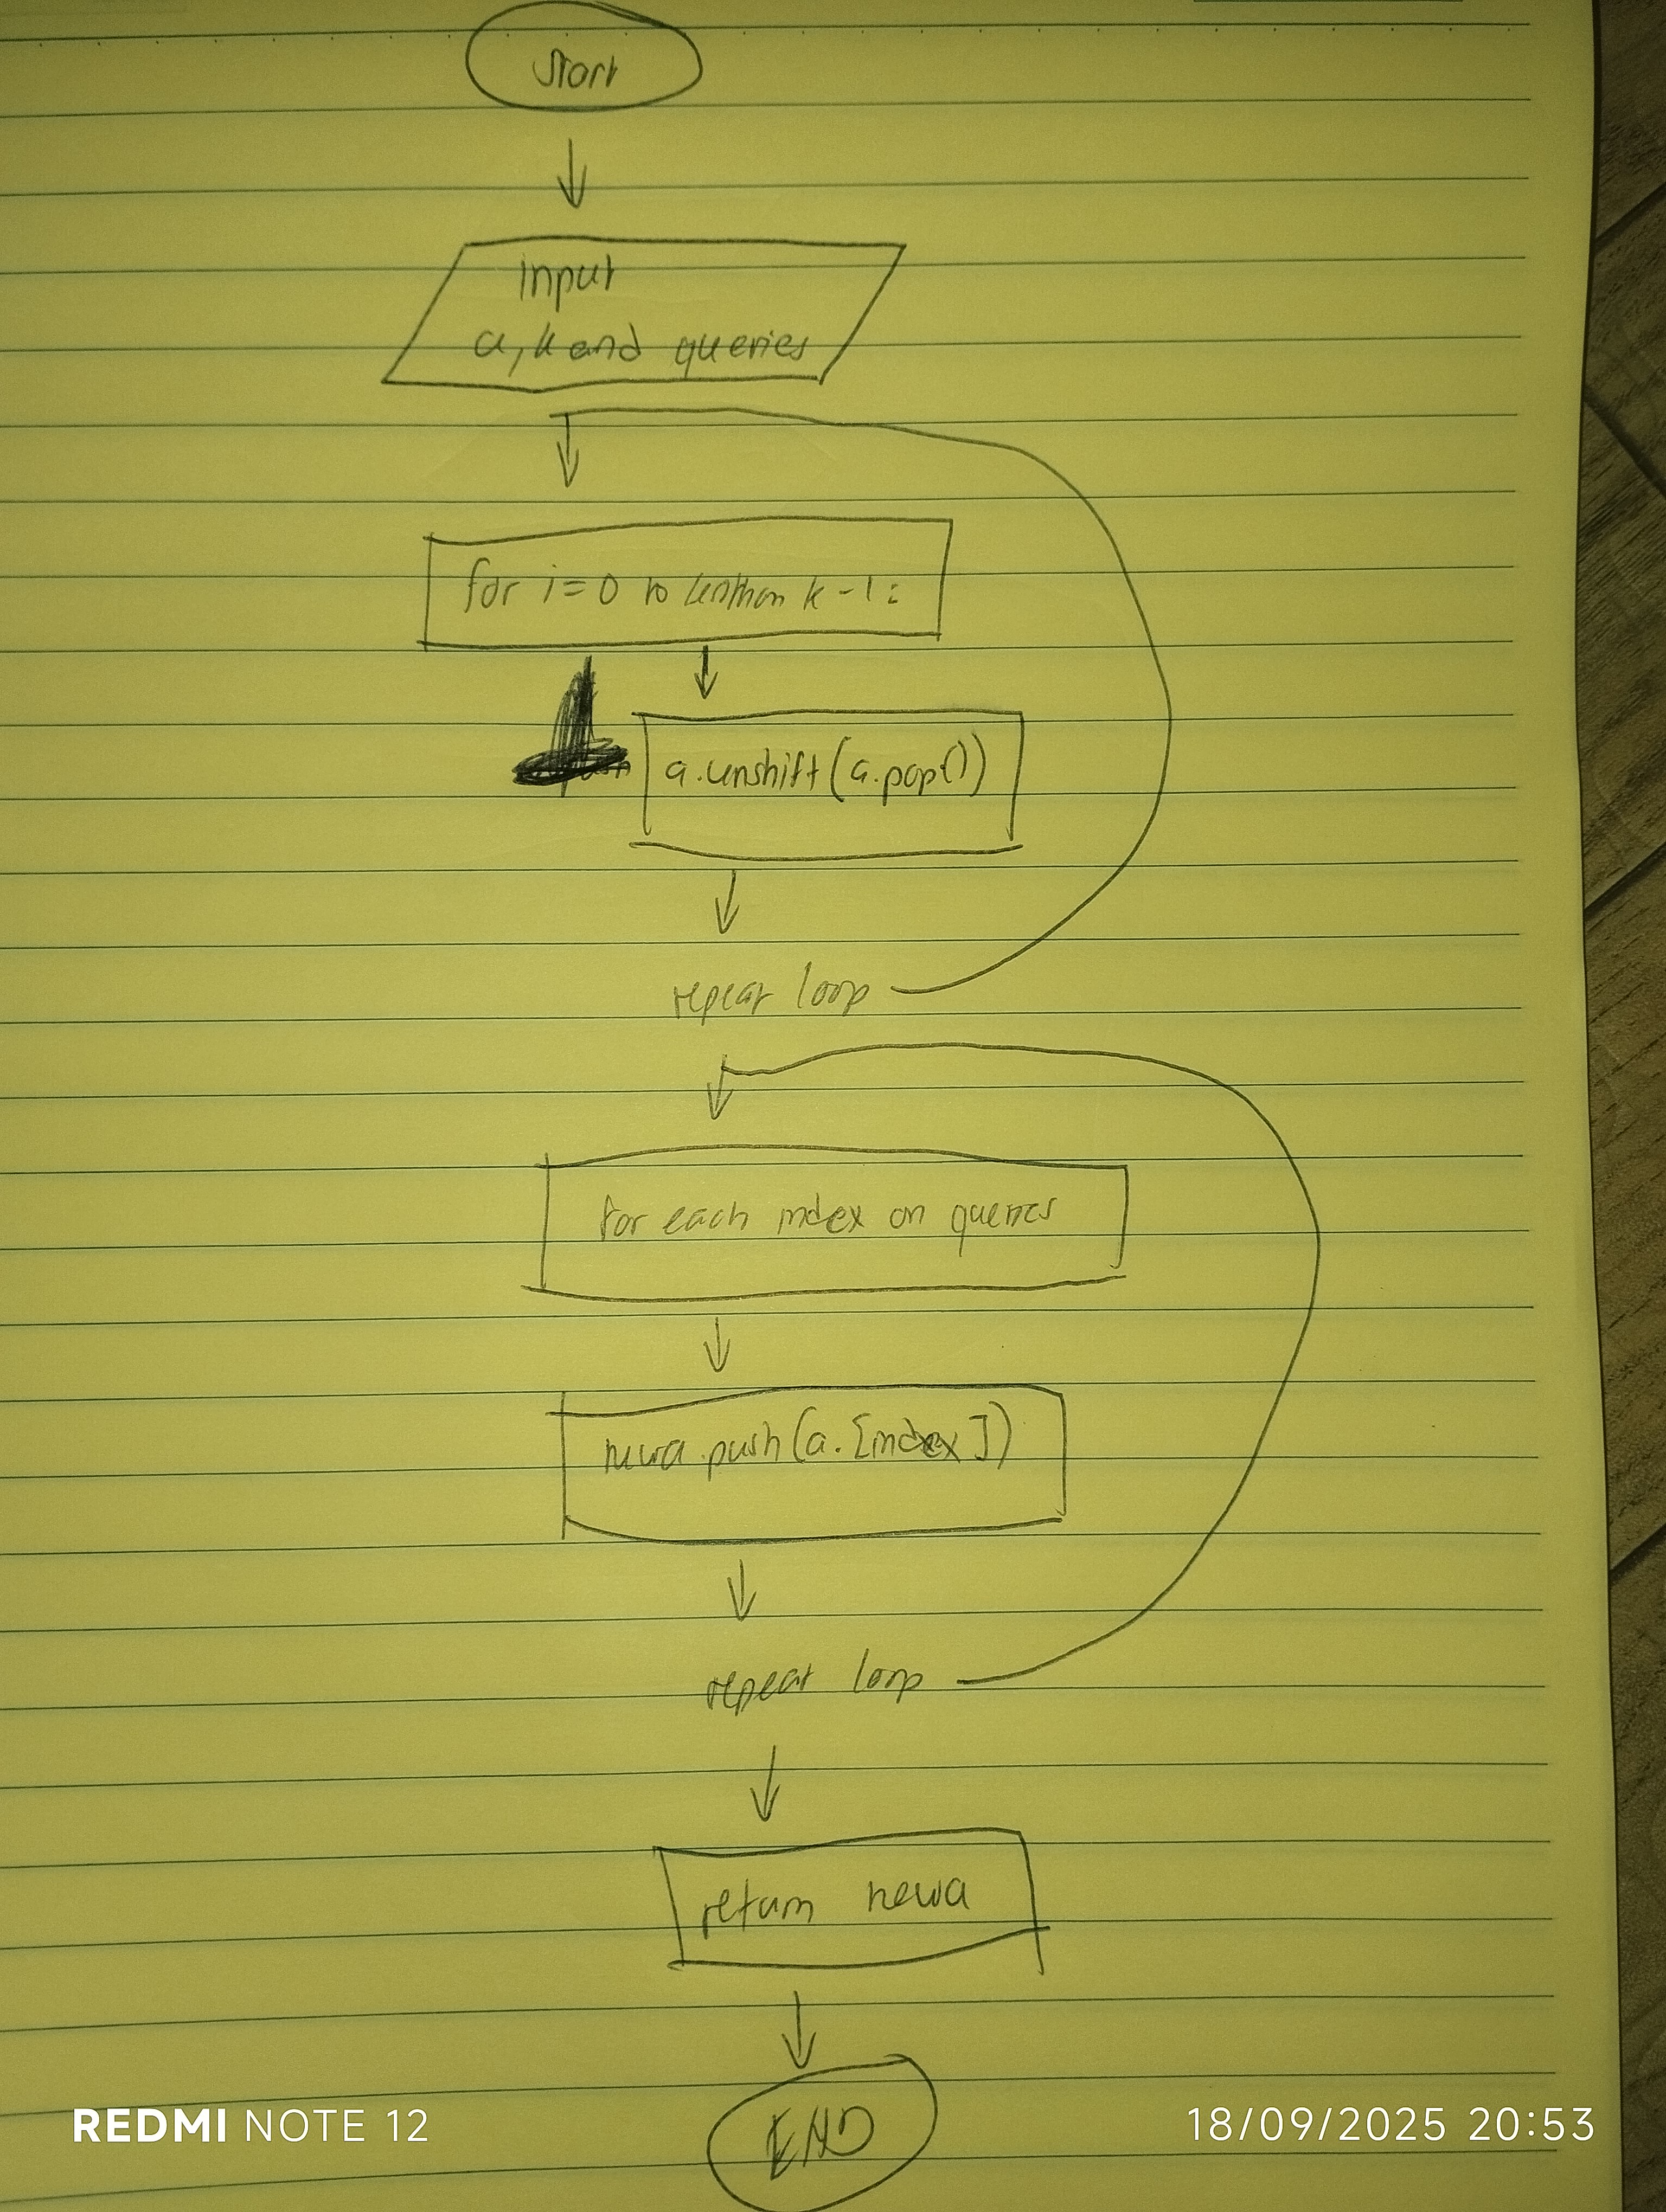 Start
input
a, k and queries
for i = 0 to lessthan k - 1 :
a.unshift(a.pop())
repeat loop
for each index on queries
newa.push(a.[index])
repeat loop
return newa
END
REDMI NOTE 12
18/09/2025 20:53